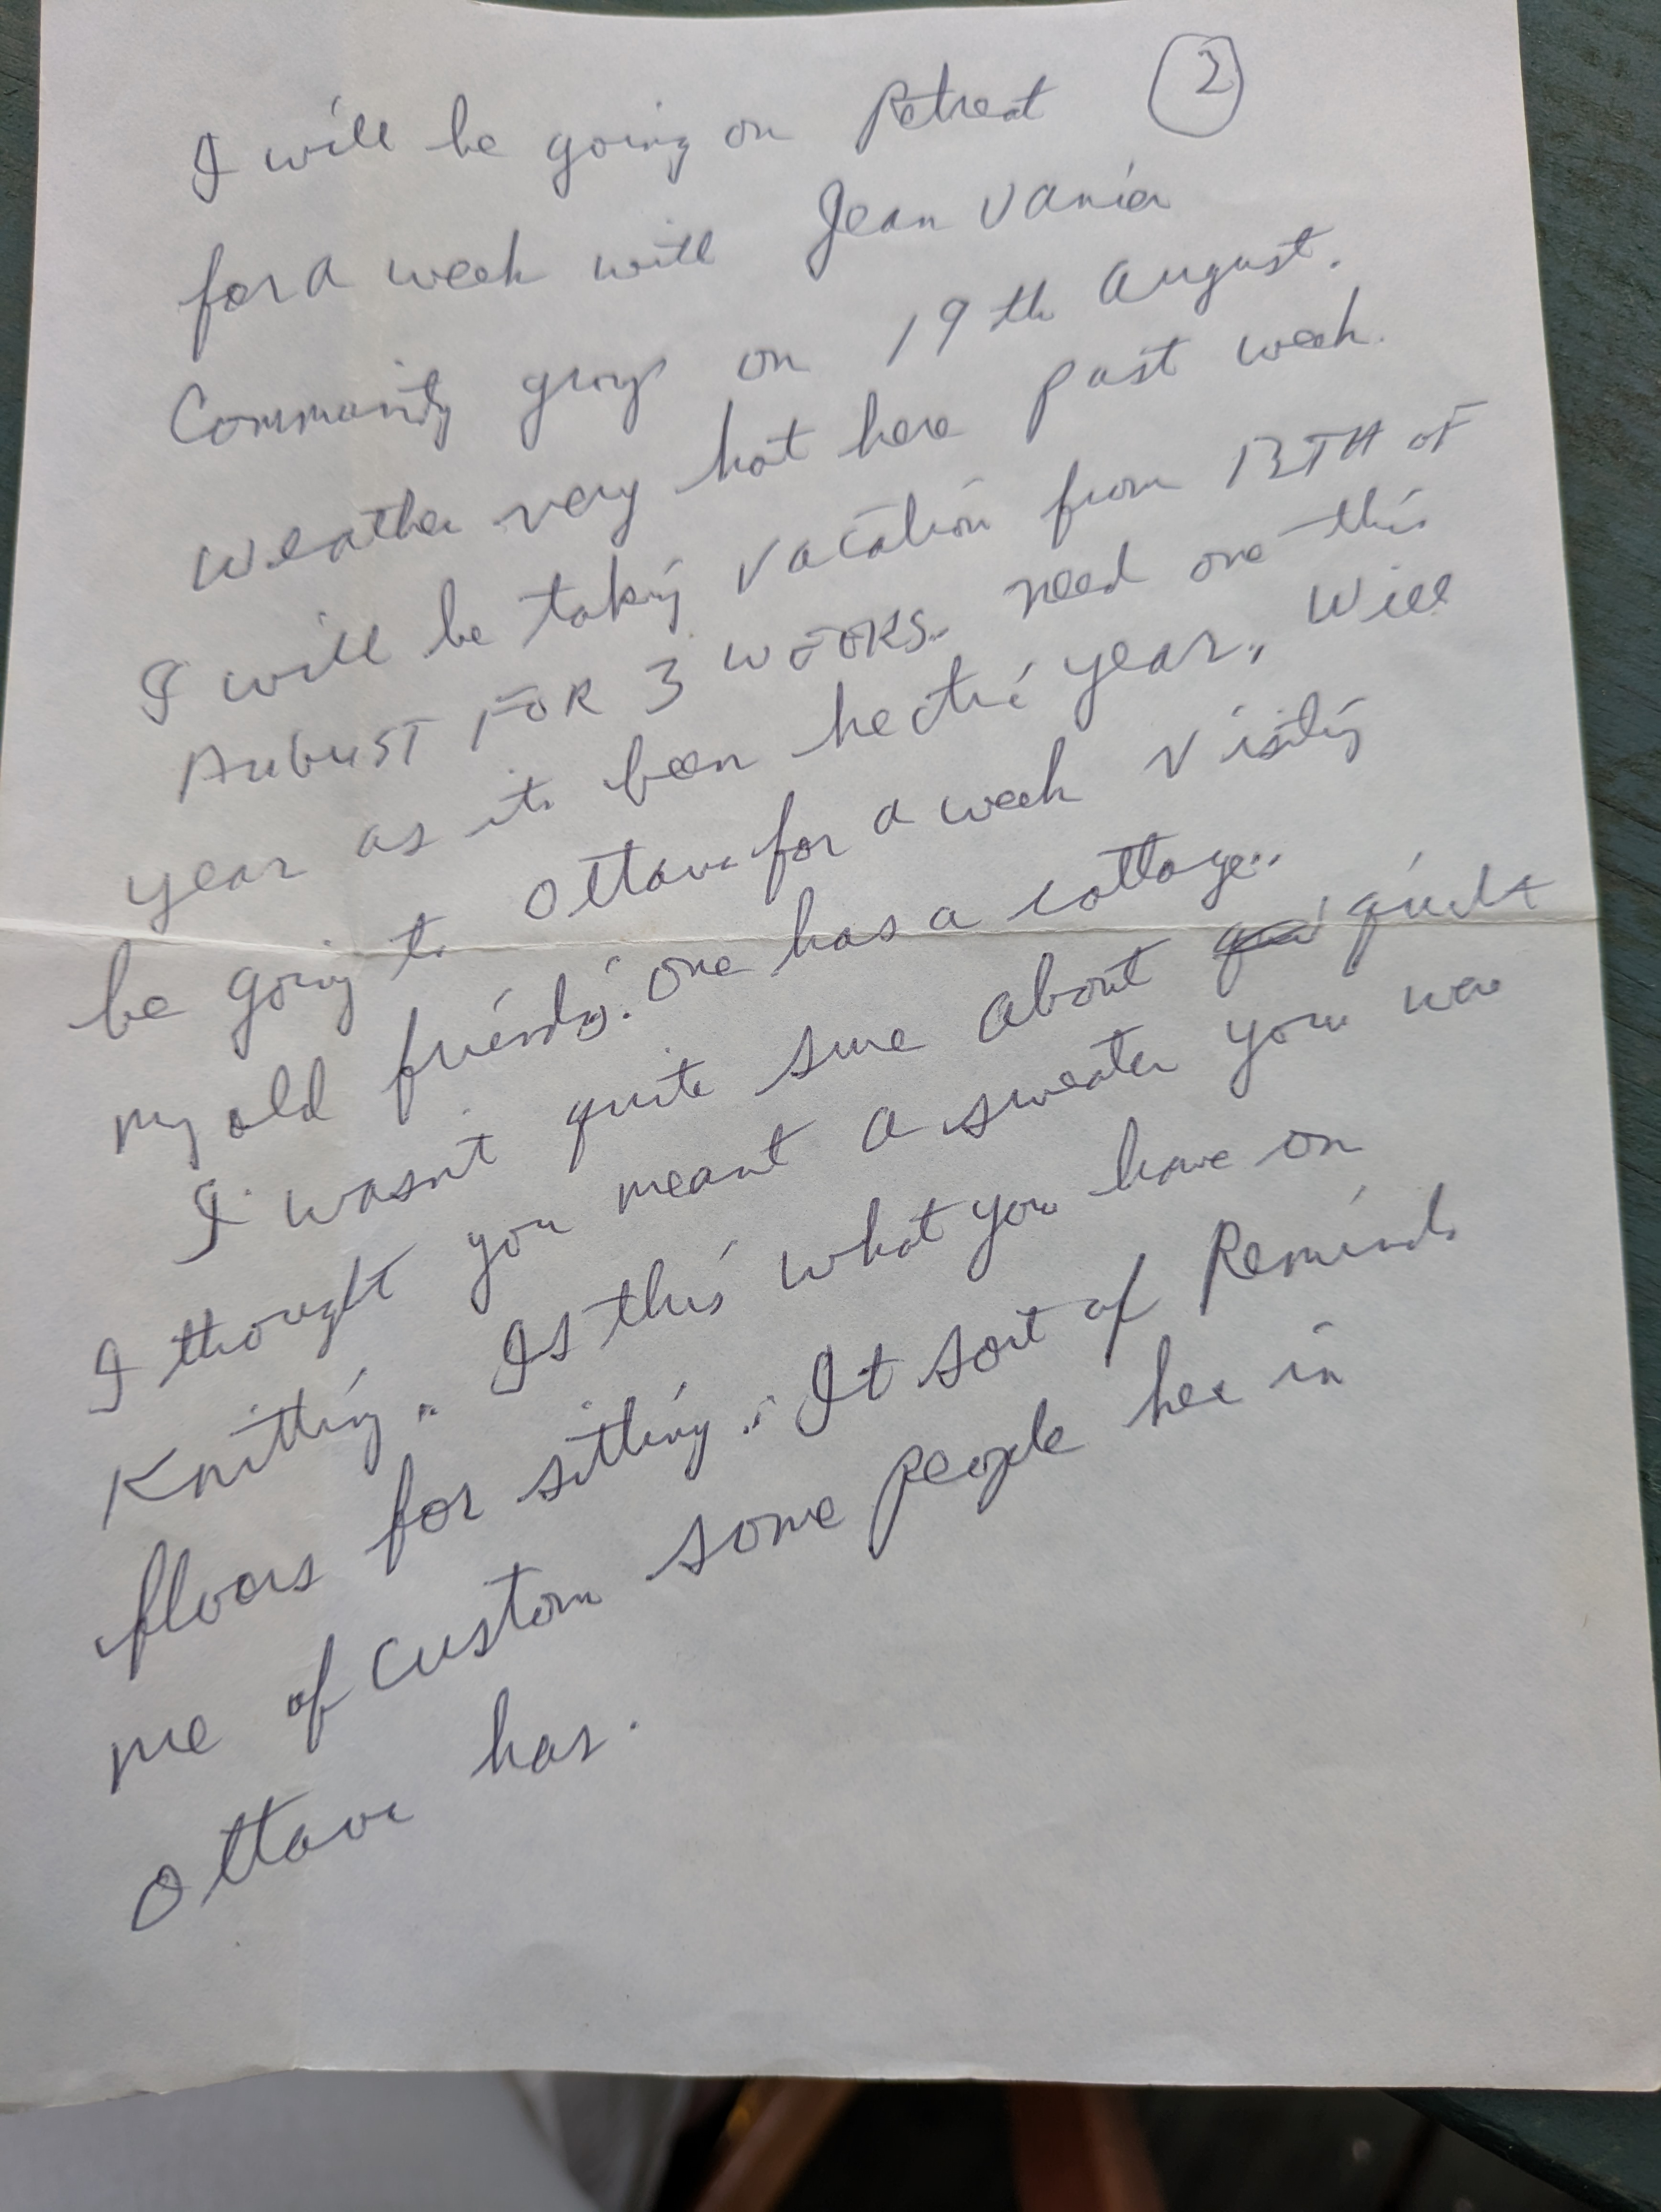 I will be going on Retreat ②
for a week will Jean Vanier
Community groups on 19th August.
Weather very hot here past week.
I will be taking vacation from 13TH OF
AUGUST FOR 3 WEEKS. need one this
year as its been hectic year, Will
be going to Ottawa for a week visiting
my old friends. One has a cottage..
I wasn't quite sure about quilt
I thought you meant a sweater you were
Knitting.. Is this what you have on
floors for sitting.. It sort of Reminds
me of custom some people here in
Ottawa has.